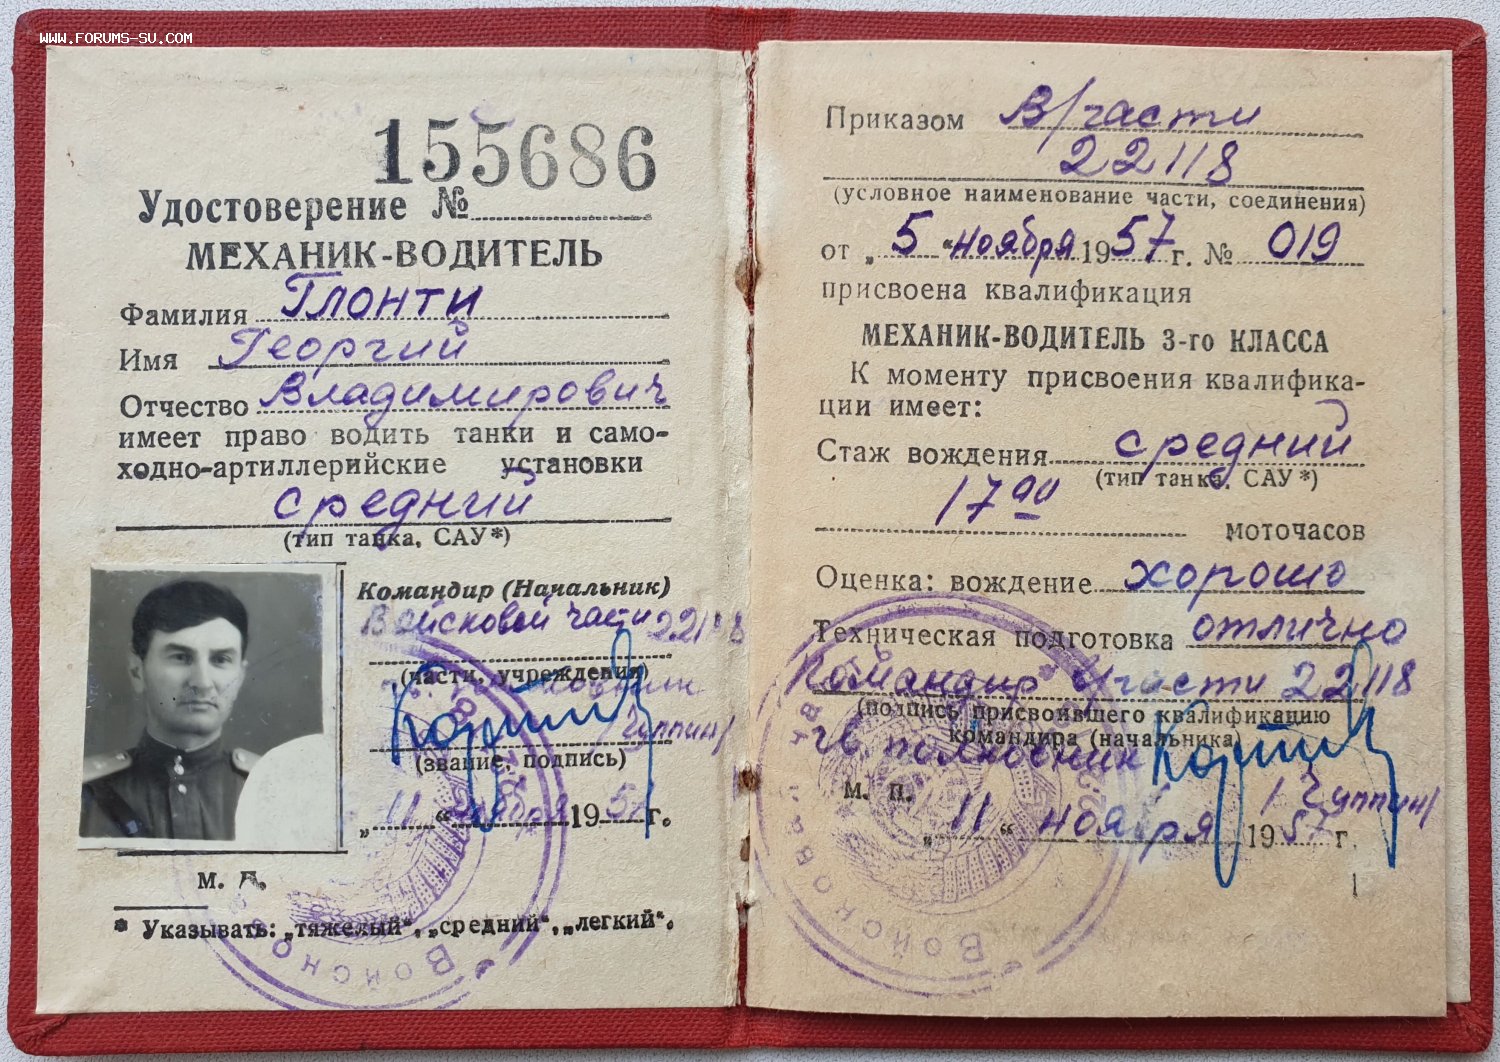 WWW.FORUMS-SU.COM
155686
Удостоверение №
МЕХАНИК-ВОДИТЕЛЬ
Фамилия Глонти
Имя Георгий
Отчество Владимирович
имеет право водить танки и само-
ходно-артиллерийские установки
средний
(тип танка, САУ*)
Командир (Начальник)
Войсковой части 22118
(части, учреждения)
гв. полковник
/Чуппин/
(звание, подпись)
„11“ ноября 1957 г.
м. п.
* Указывать: „тяжелый“, „средний“, „легкий“.
Войскова
Приказом В/части
22118
(условное наименование части, соединения)
от „5“ ноября 1957 г. № 019
присвоена квалификация
МЕХАНИК-ВОДИТЕЛЬ 3-го КЛАССА
К моменту присвоения квалифика-
ции имеет:
Стаж вождения средний
(тип танка, САУ*)
17 00
моточасов
Оценка: вождение хорошо
Техническая подготовка отлично
Командир в/части 22118
(подпись присвоившего квалификацию
командира (начальника)
гв. полковник
/Чуппин/
м. п.
„11“ ноября 1957 г.
Войскова